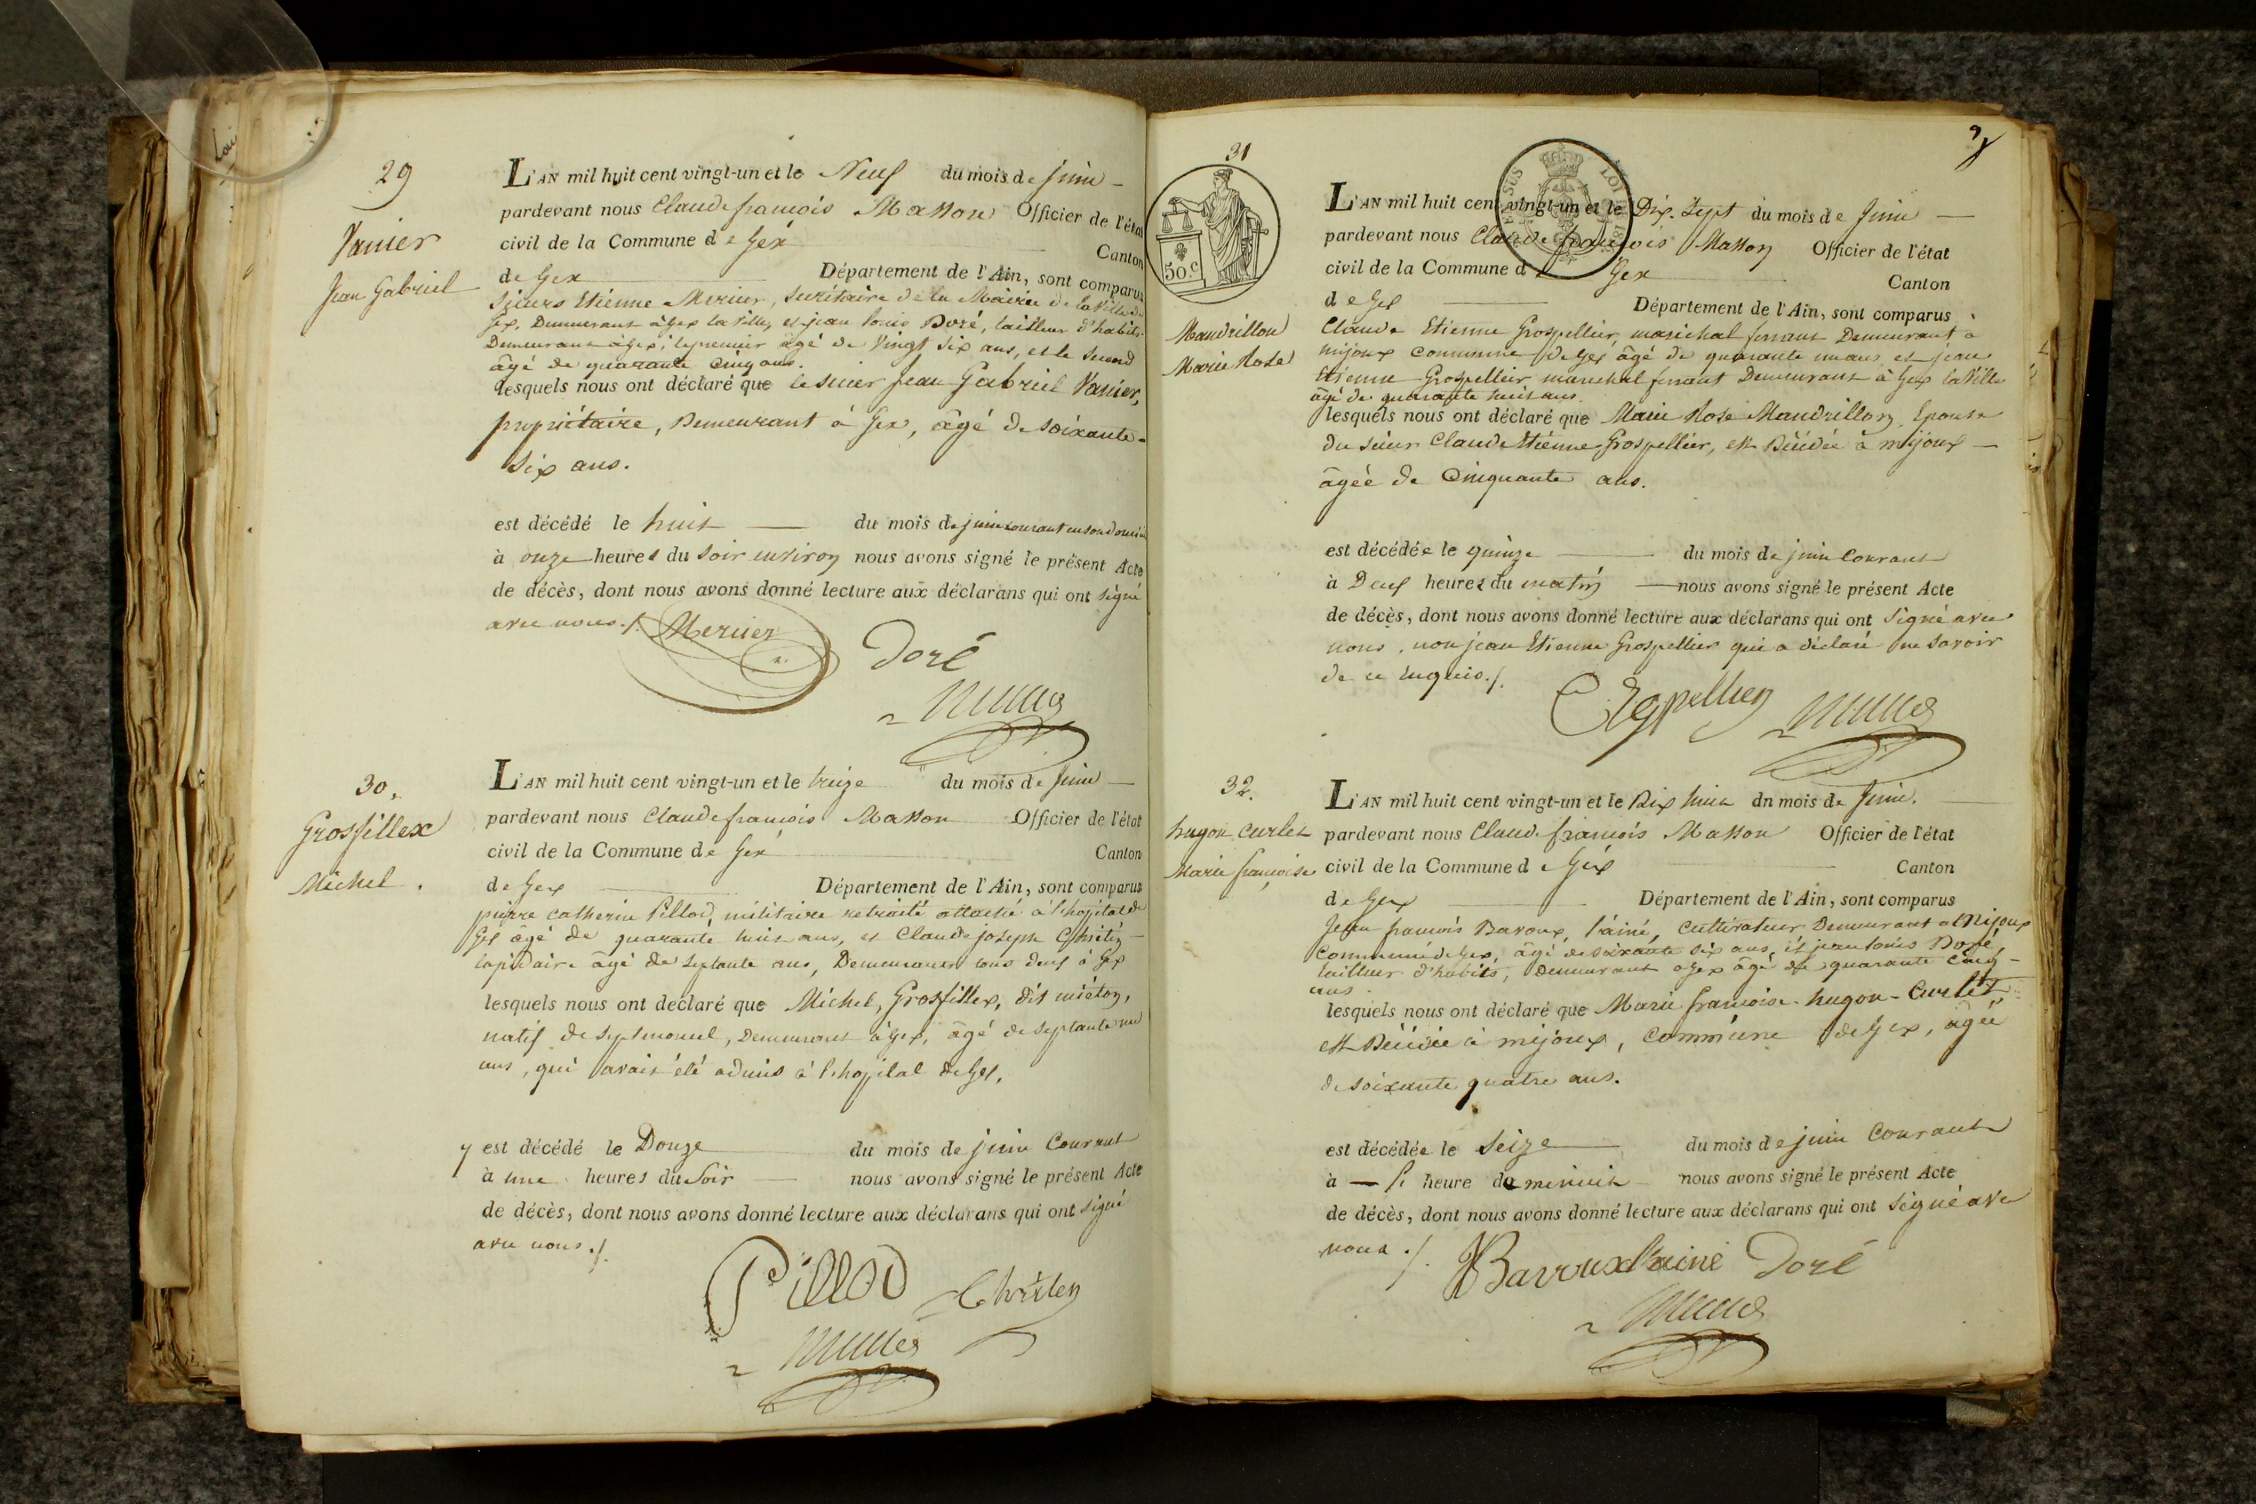 29
Vanier
Jean Gabriel
L'AN mil huit cent vingt-un et le Neuf du mois de Juin
pardevant nous Claude françois Masson Officier de l'état
civil de la Commune de Gex Canton
de Gex Département de l'Ain, sont comparus
Sieurs Etienne Mercier, Secrétaire de la Mairie de la Ville de
Gex, Demeurant à Gex la Ville, et jean louis Doré, tailleur d'habits
Demeurant à Gex, le premier âgé de Vingt six ans, et le second
âgé de quarante cinq ans.
lesquels nous ont déclaré que le sieur Jean Gabriel Vanier,
propriétaire, Demeurant à Gex, âgé de soixante-
six ans.
est décédé le huit du mois de juin courant en son domicile
à onze heures du soir environ nous avons signé le présent Acte
de décès, dont nous avons donné lecture aux déclarans qui ont signé
avec nous ./. Mercier
Doré
30.
Grosfillex
Michel.
L'AN mil huit cent vingt-un et le treize du mois de Juin
pardevant nous Claude françois Masson Officier de l'état
civil de la Commune de Gex Canton
de Gex Département de l'Ain, sont comparus
pierre catherin Pillod, militaire retraité attaché à l'hopital de
Gex âgé de quarante huit ans, et Claude joseph Chrétin
lapidaire âgé de septante ans, Demeurants tous deux à Gex
lesquels nous ont declaré que Michel, Grosfillex, dit mieton,
natif de Septmoncel, Demeurant à Gex, âgé de septante un
ans, qui avait été admis à l'hopital de Gex,
y est décédé le Douze du mois de juin Courant
à une heures du Soir nous avons signé le présent Acte
de décès, dont nous avons donné lecture aux déclarans qui ont signé
avec nous ./.
Pillod Chrêten
31
50.c
L'AN mil huit cent vingt-un et le Dix. Sept du mois de Juin
pardevant nous Claude françois Masson Officier de l'état
civil de la Commune de Gex Canton
de Gex Département de l'Ain, sont comparus
Mandrillon
Marie Rose
Claude Etienne Grospellier, maréchal ferrant Demeurant à
mijoux commune de Gex âgé de quarante un ans, et jean
Etienne Grospellier marechal ferrant Demeurant à Gex la Ville
âgé de quarante huit ans.
lesquels nous ont déclaré que Marie Rose Mandrillon, Epouse
du sieur Claude Etienne Grospellier, est Décédée à mijoux
âgée de Cinquante ans.
est décédée le quinze du mois de juin Courant
à Deux heures du matin nous avons signé le présent Acte
de décès, dont nous avons donné lecture aux déclarans qui ont Signé avec
nous, non jean Etienne Grospellier qui a déclaré ne savoir
de ce enquis ./.
32.
hugon curlet
Marie françoise
L'AN mil huit cent vingt-un et le Dix huit dn mois de Juin.
pardevant nous Claude françois Masson Officier de l'état
civil de la Commune de Gex Canton
de Gex Département de l'Ain, sont comparus
Jean françois Baroux, l'ainé, Cultivateur Demeurant a Mijoux
Commune de Gex, âgé de soixante six ans, et jean louis Doré,
tailleur d'habits, demeurant a Gex âgé de quarante cinq
ans
lesquels nous ont déclaré que Marie françoise hugon-Curlet,
est Décédée à mijoux, Commune de Gex, âgée
de soixante quatre ans.
est décédée le Seize du mois de juin Courant
à heure de minuit nous avons signé le présent Acte
de décès, dont nous avons donné lecture aux déclarans qui ont signé avec
nous ./. Barroux l'ainé Doré